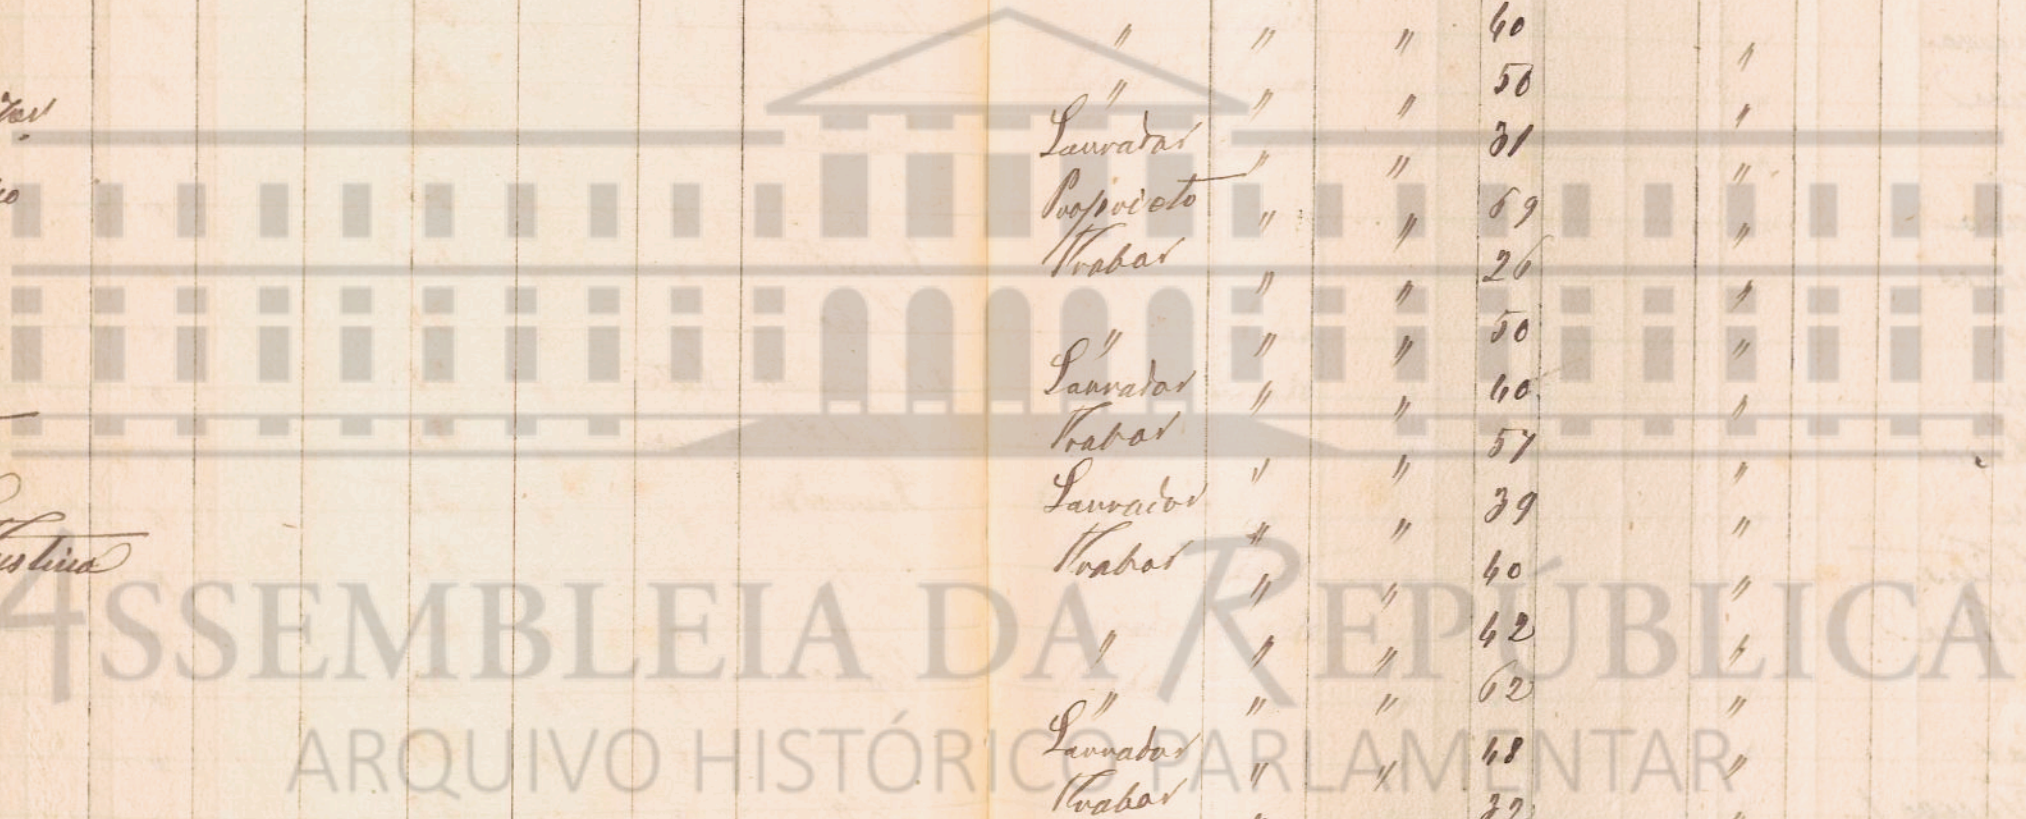 " " " 40 "
" " " 50 "
Lavrador " " 31 "
Propriet.o " " 69 "
Trabar " " 26 "
" " " 50 "
Lavrador " " 40 "
Trabar " " 57 "
Lavrador " " 39 "
Trabar " " 40 "
" " " 42 "
" " " 62 "
Lavrador " " 48 "
Trabar " 32 "
ASSEMBLEIA DA REPÚBLICA
ARQUIVO HISTÓRICO PARLAMENTAR